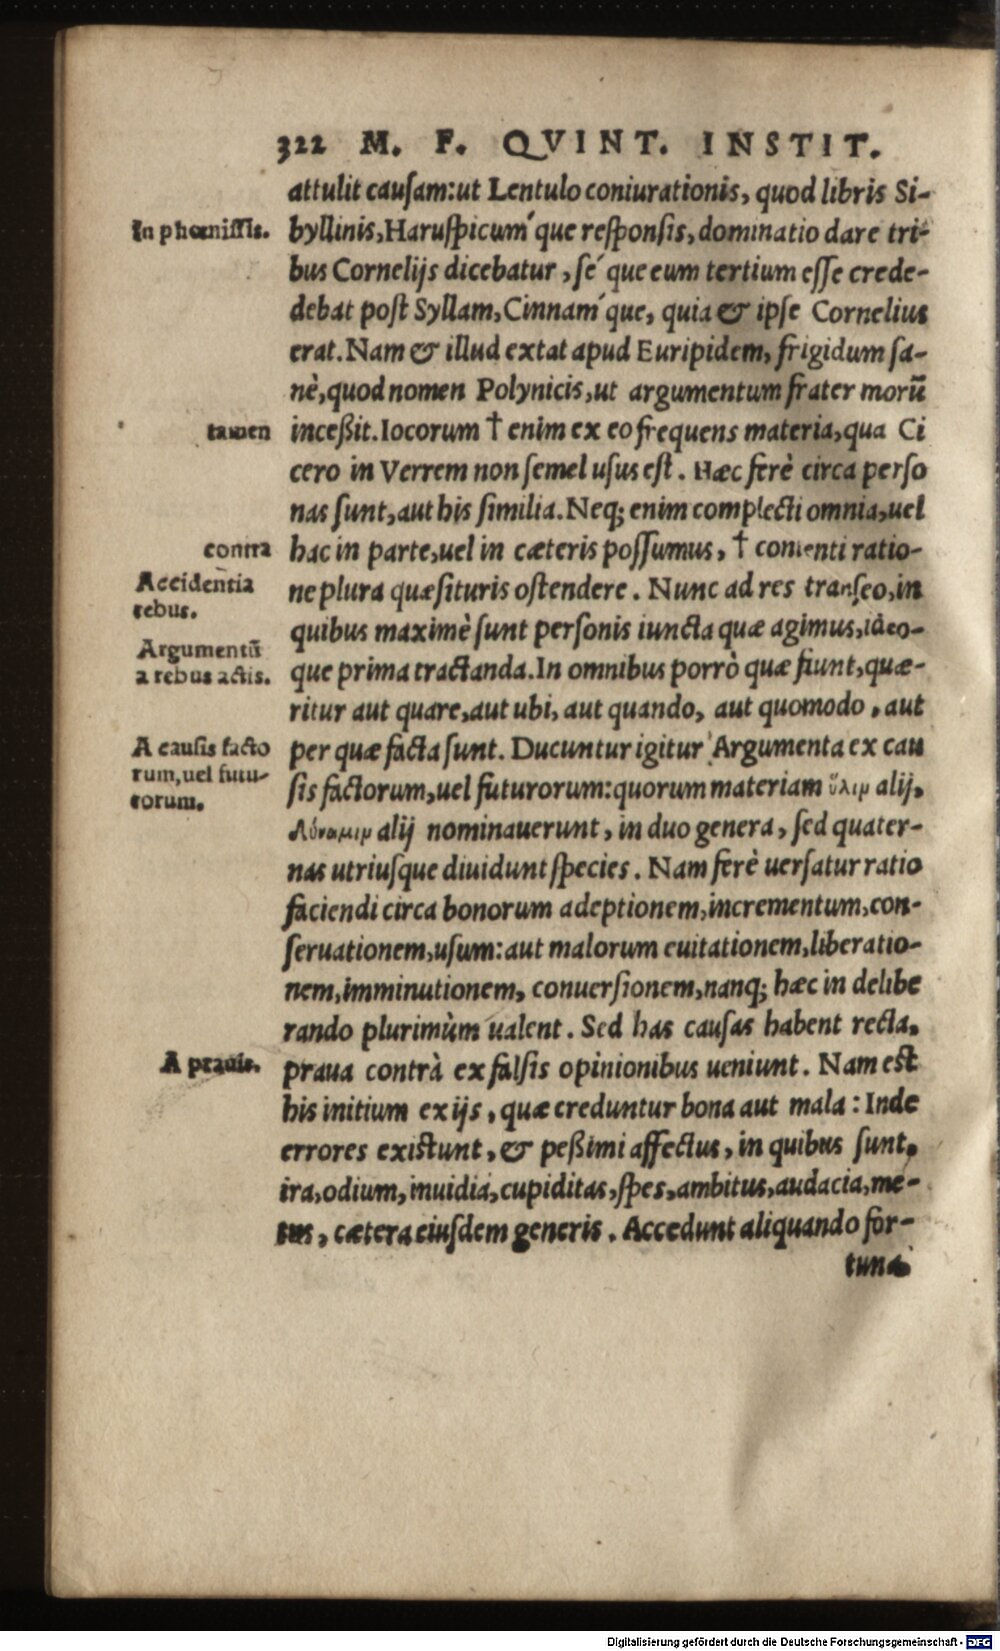 322 M. F. QVINT. INSTIT.
attulit causam:ut Lentulo coniurationis, quod libris Si-
In phœnissis.
byllinis,Haruspicum´que responsis,dominatio dare tri-
bus Cornelijs dicebatur, sé que eum tertium esse crede-
debat post Syllam,Cinnam´que, quia & ipse Cornelius
erat.Nam & illud extat apud Euripidem, frigidum sa-
nè,quod nomen Polynicis,ut argumentum frater morū
tamen
inceßit.Iocorum † enim ex eo frequens materia,qua Ci
cero in Verrem non semel usus est. Hæc ferè circa perso
nas sunt,aut his similia.Neq; enim complecti omnia,uel
contra
hac in parte,uel in cæteris possumus, † contenti ratio-
Accidentia
rebus.
ne plura quæsituris ostendere. Nunc ad res transeo,in
quibus maximè sunt personis iuncta quæ agimus,ideo-
Argumentū
a rebus actis.
que prima tractanda.In omnibus porrò quæ fiunt,quæ-
ritur aut quare,aut ubi, aut quando, aut quomodo, aut
A causis facto
rum,uel futu-
rorum.
per quæ facta sunt. Ducuntur igitur Argumenta ex cau
sis factorum,uel futurorum:quorum materiam ὕλιμ alij,
Λύναμιμ alij nominauerunt, in duo genera, sed quater-
nas utriusque diuidunt species. Nam ferè uersatur ratio
faciendi circa bonorum adeptionem,incrementum,con-
seruationem,usum:aut malorum euitationem,liberatio-
nem,imminutionem, conuersionem,nanq; hæc in delibe
rando plurimùm ualent. Sed has causas habent recta,
A prauis.
praua contrà ex falsis opinionibus ueniunt. Nam est
his initium ex ijs, quæ creduntur bona aut mala: Inde
errores existunt, & peßimi affectus, in quibus sunt,
ira,odium,inuidia,cupiditas,spes,ambitus,audacia,me-
tus, cætera eiusdem generis. Accedunt aliquando for-
tuna
Digitalisierung gefördert durch die Deutsche Forschungsgemeinschaft - DFG